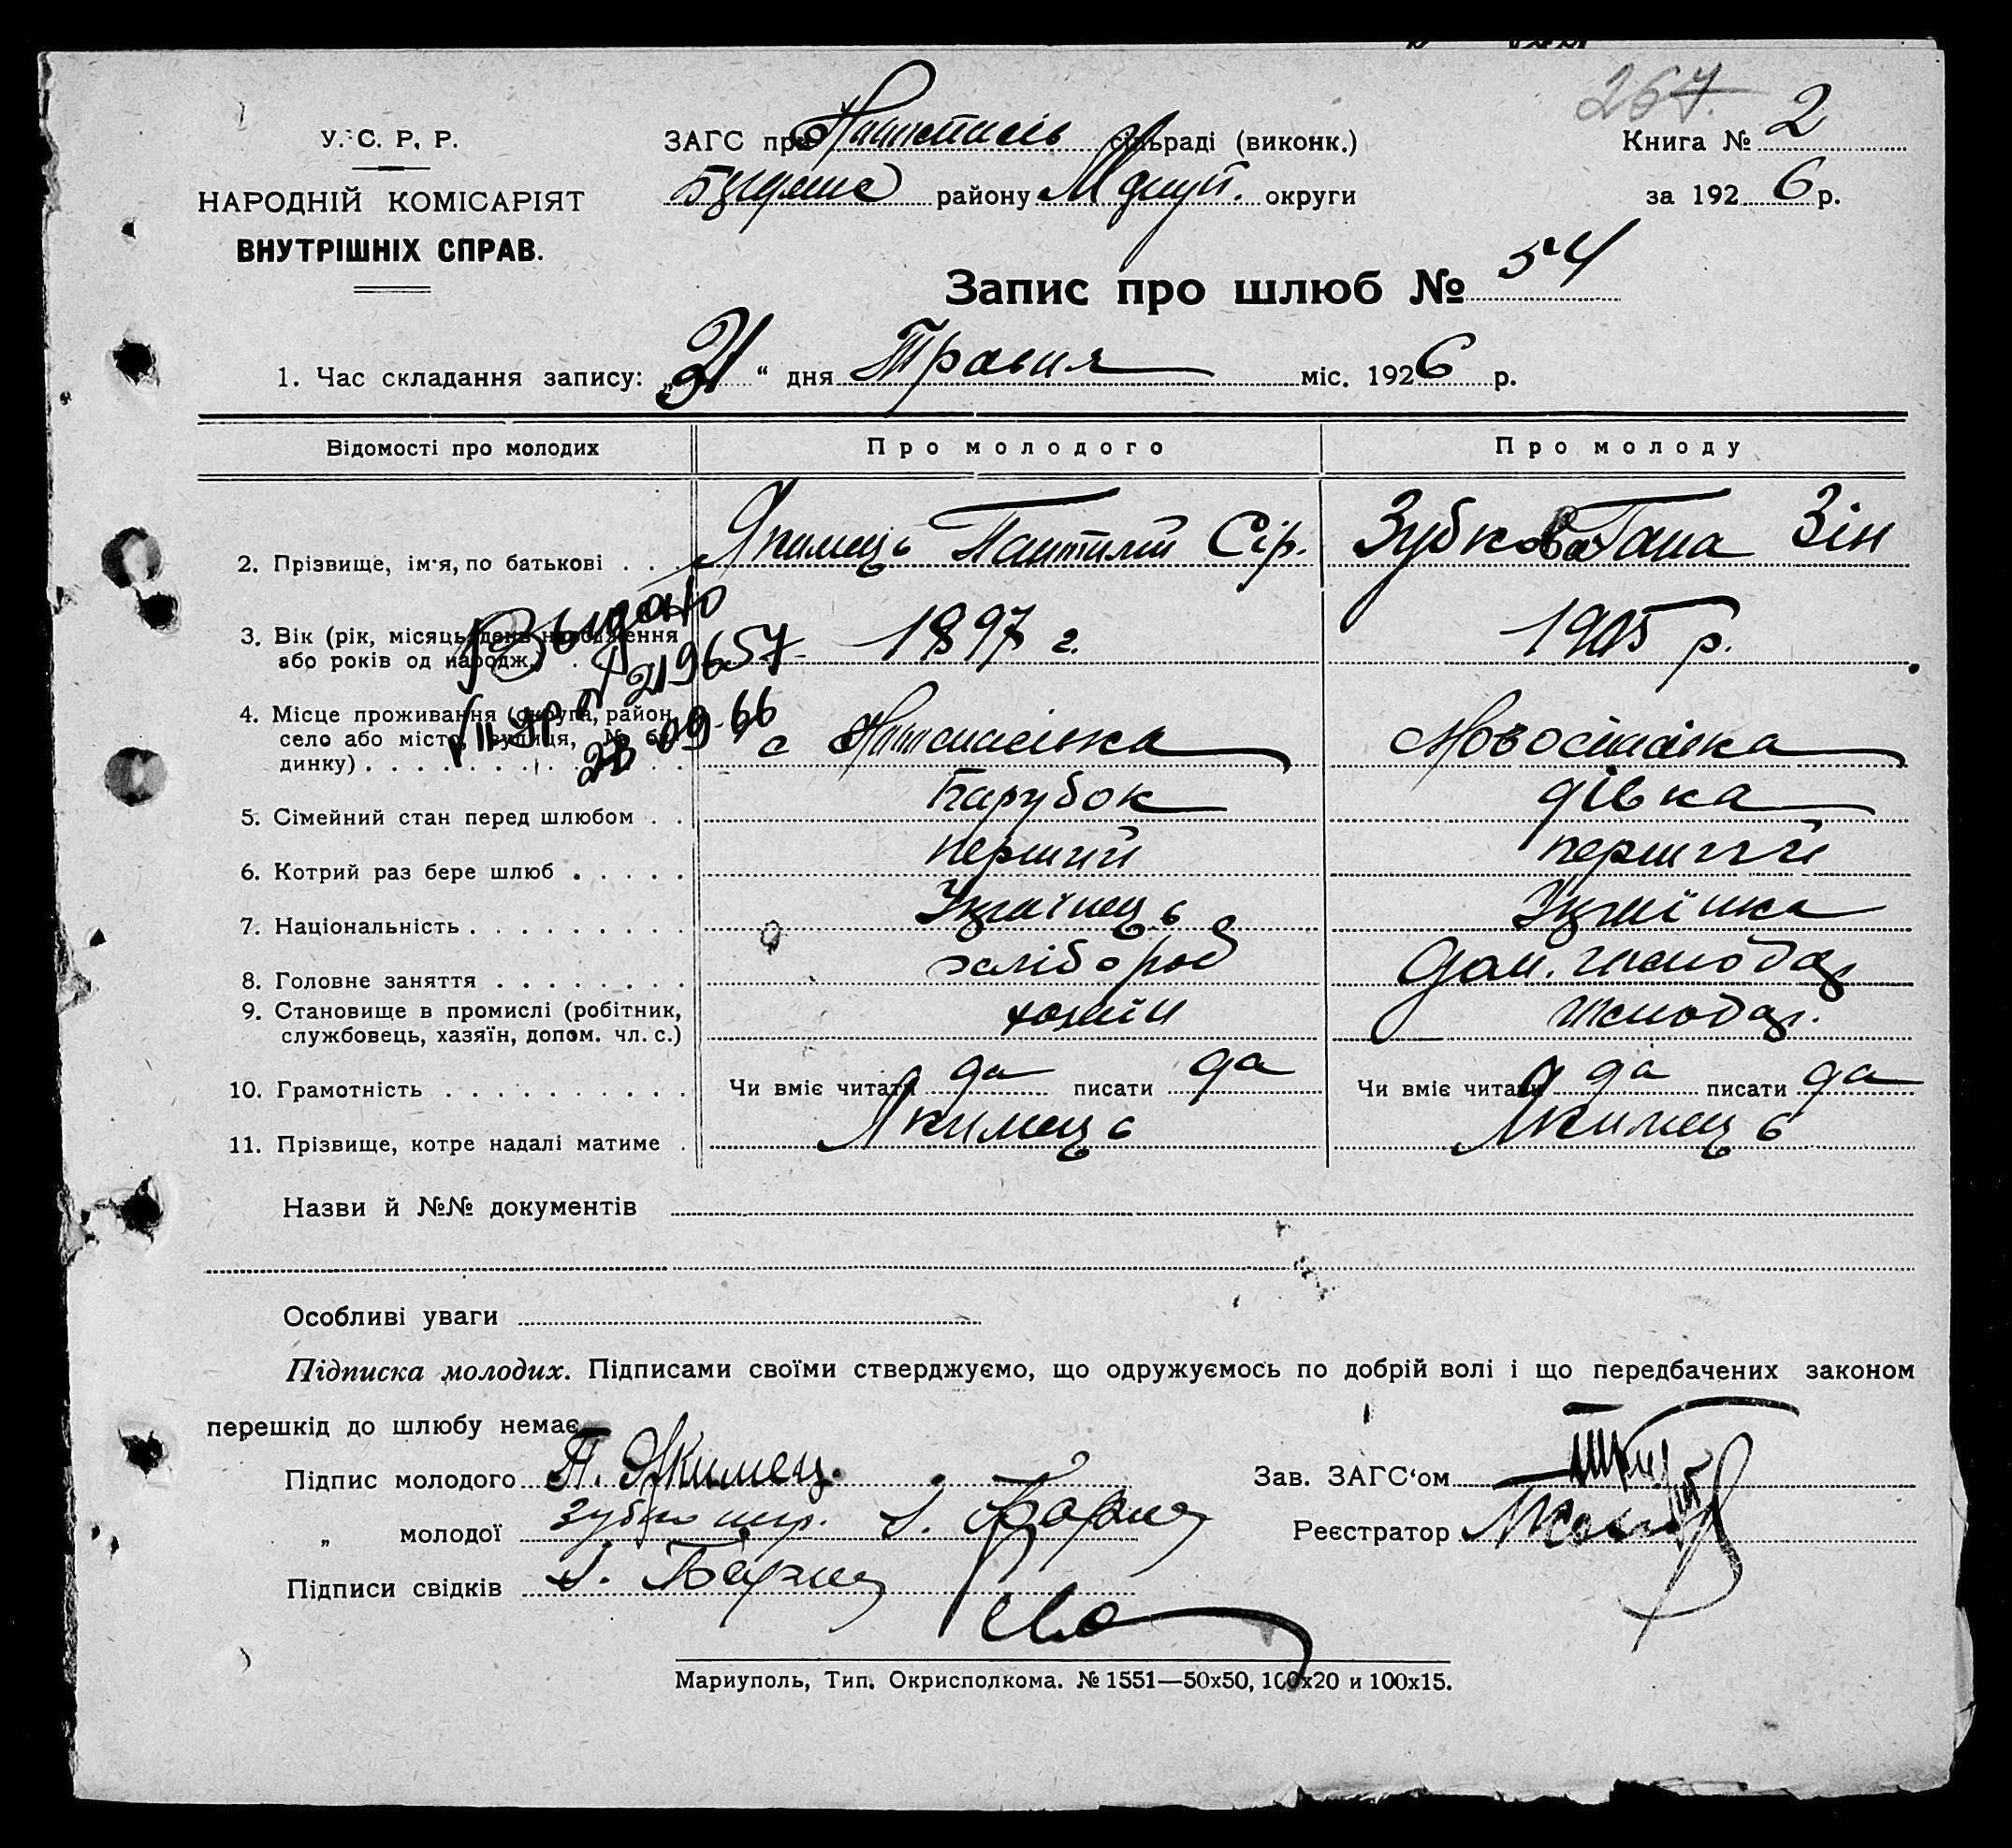 267.
У. С. Р. Р.
ЗАГС при сільраді (виконк.)
Книга № 2
НАРОДНІЙ КОМІСАРІЯТ
району округи
за 1926 р.
ВНУТРІШНІХ СПРАВ.
Запис про шлюб № 54
1. Час складання запису: „21“ дня Травня міс. 1926 р.
Відомості про молодих
Про молодого
Про молоду
2. Прізвище, ім'я, по батькові . . .
Якимець Пантилій Сір.
Зубкова Гана Зін
3. Вік (рік, місяць, день народження
або років од народж.)
1897 г.
1905 р.
Выдано
219657
4. Місце проживання (округа, район,
село або місто, вулиця, № бу-
динку) . . . . . . . . . . . . .
23 09-66
с
5. Сімейний стан перед шлюбом . .
Парубок
дівка
6. Котрий раз бере шлюб . . . . .
перший
перший
7. Національність . . . . . . . . .
Українець
Українка
8. Головне заняття . . . . . . . .
хлібороб
Дом. господар
9. Становище в промислі (робітник,
службовець, хазяїн, допом. чл. с.)
хозяїн
господар.
10. Грамотність . . . . . . . . . .
Чи вміє читати да писати да
Чи вміє читати да писати да
11. Прізвище, котре надалі матиме .
Якимець
Якимець
Назви й №№ документів
Особливі уваги
Підписка молодих. Підписами своїми стверджуємо, що одружуємось по добрій волі і що передбачених законом
перешкід до шлюбу немає
Підпис молодого П. Якимец.
Зав. ЗАГС‘ом
„ молодої
Реєстратор
Підписи свідків
Мариуполь, Тип. Окрисполкома. № 1551—50х50, 100х20 и 100х15.